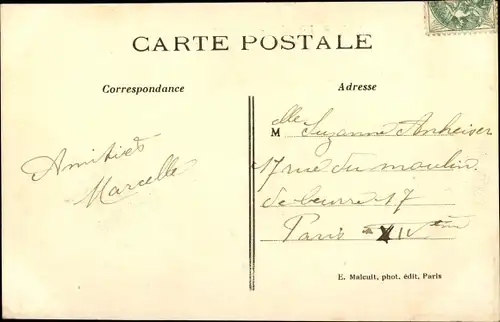 CARTE POSTALE
Correspondance
Adresse
Amitiés
Marcelle
Mlle Suzanne Anheiser
17 rue du moulin
de beurre 17
Paris XIVème
E. Malcuit, phot. édit, Paris